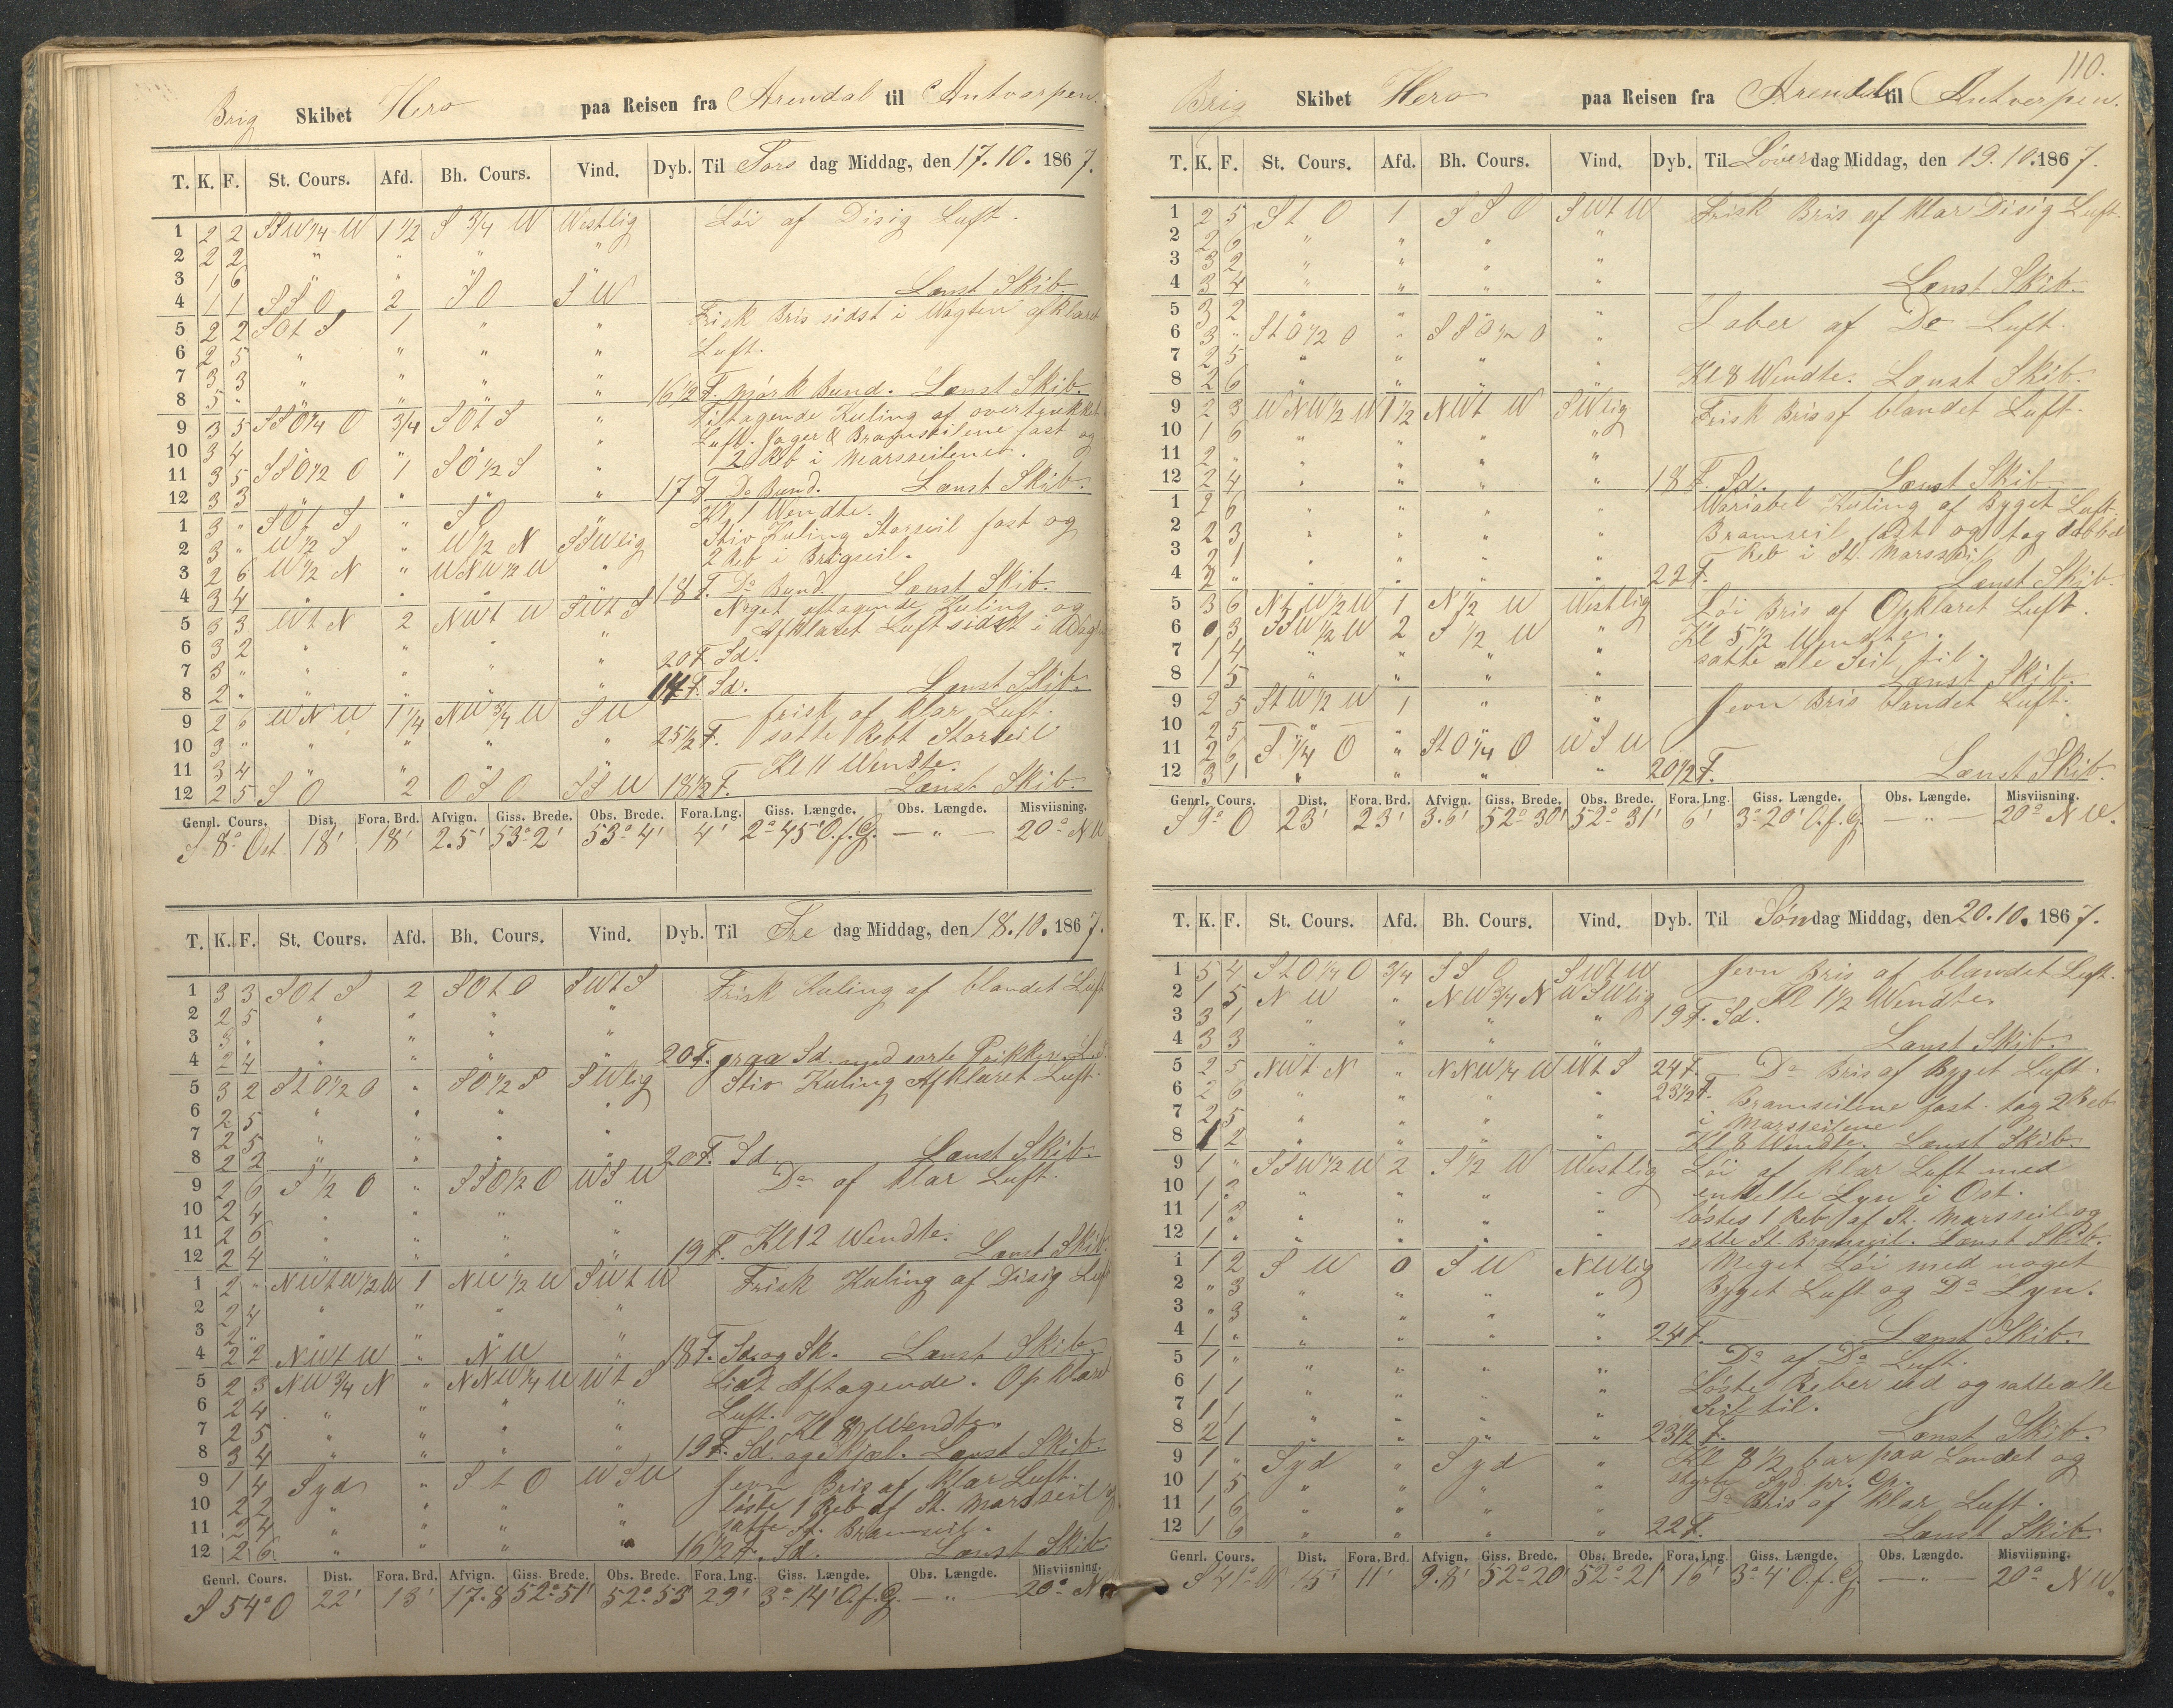 Brig Skibet Hero paa Reisen fra Arendal til Antverpen.
T. K. F. St. Cours. Afd. Bh. Cours. Vind. Dyb. Til Tors dag Middag, den 17.10.1867.
1 2 2 SSW 1/4 W 1 1/2 S 3/4 W Westlig Löi af Disig Luft.
2 2 2 " " " "
3 1 6 " " " "
4 1 1 SSO 2 SO SW Lænst Skib.
5 2 2 SOt S 1 " " Frisk Bris sidst i Vagten afklaret
6 2 5 " " " " Luft.
7 3 3 " " " "
8 5 " " " " " 16 1/2 F. mörk Bund. Lænst Skib.
9 3 5 SSO 1/4 O 3/4 SOt S " Tiltagende Kuling af overtrukket
10 3 4 " " " " Luft. Jager & Bramseilene fast og
11 3 5 SSO 1/2 O 1 SO 1/2 S " 2 Reb i Marsseilene.
12 3 3 " " " " 17 F Do Bund. Lænst Skib.
1 3 " SOt S " SO " Kl 1 Wendte.
2 3 " W 1/2 S " W 1/2 N SSWlig Stiv Kuling Storseil fast og
3 2 6 W 1/2 N " WNW 1/2 W " 2 Reb i Brigseil.
4 3 4 " " " " 18 F. Do Bund. Lænst Skib.
5 3 3 Wt N 2 NWt W SWt S Noget aftagende Kuling og
6 3 2 " " " " Afklaret Luft sidst i Wagten
7 3 " " " " " 20 F Sd.
8 2 " " " " " 17 F. Sd. Lænst Skib.
9 2 6 WNW 1 1/4 NW 3/4 W SW frisk af klar Luft.
10 3 " " " " " 25 1/2 F. satte Rebt Storseil
11 3 4 " " " " Kl 11 Wendte.
12 2 5 SO 2 OSO SSW 18 1/2 F. Lænst Skib.
Genrl. Cours. Dist. Fora. Brd. Afvign. Giss. Brede. Obs. Brede. Fora. Lng. Giss. Længde. Obs. Længde. Misviisning.
S 8° Ost 18' 18' 2.5' 53° 2' 53° 4' 4' 2° 45' O.f.G. — " — 20° NW
T. K. F. St. Cours. Afd. Bh. Cours. Vind. Dyb. Til Fre dag Middag, den 18.10.1867.
1 3 3 SOt S 2 SOt O SWt S Frisk Kuling af blandet Luft
2 2 5 " " " "
3 3 " " " " "
4 2 4 " " " " 20 F. graa Sd. med sorte Prikker. L. S
5 3 2 StO 1/2 O " SO 1/2 S SWlig Stiv Kuling Afklaret Luft.
6 2 5 " " " "
7 2 5 " " " "
8 2 2 " " " " 20 F. Sd. Lænst Skib.
9 2 6 S 1/2 O " SSO 1/2 O WSW Do af klar Luft.
10 2 4 " " " "
11 2 6 " " " "
12 2 4 " " " " 19 F. Kl 12 Wendte. Lænst Skib.
1 2 " NWtW 1/2 W 1 NW 1/2 W SWt W Frisk Kuling af Disig Luft
2 2 4 " " " "
3 2 " " " " "
4 2 2 NWt W " NW " 18 F. Sd. og Sk. Lænst Skib.
5 2 3 NW 3/4 N " NNW 1/4 W Wt S Lidt Aftagende. Opklaret
6 2 4 " " " " Luft. Kl 8 Wendte.
7 2 5 " " " "
8 3 4 " " " " 19 F. Sd. og Skjæl. Lænst Skib.
9 1 4 Syd " St O WSW Jevn Bris af klar Luft.
10 2 2 " " " " löste 1 Reb af St. Marsseil og
11 2 4 " " " " satte St. Bramseil.
12 2 6 " " " " 16 1/2 F. Sd. Lænst Skib
Genrl. Cours. Dist. Fora. Brd. Afvign. Giss. Brede. Obs. Brede. Fora. Lng. Giss. Længde. Obs. Længde. Misviisning.
S 54° O 22' 13' 17.8 52° 51' 52° 53' 29' 3° 14' O.f.G. — " — 20° N
110.
Brig Skibet Hero paa Reisen fra Arendal til Antverpen.
T. K. F. St. Cours. Afd. Bh. Cours. Vind. Dyb. Til Löver dag Middag, den 19.10.1867.
1 2 5 St O 1 SSO SWt W Frisk Bris af klar Disig Luft.
2 2 6 " " " "
3 3 2 " " " "
4 3 4 " " " " Lænst Skib.
5 3 2 " " " " Laber af Do Luft.
6 3 " StO 1/2 O " SSO 1/2 O "
7 2 5 " " " "
8 2 6 " " " " Kl 8 Wendte. Lænst Skib.
9 2 3 WNW 1/2 W 1 1/2 NWt W SWlig Frisk Bris af blandet Luft.
10 1 6 " " " "
11 2 " " " " "
12 2 4 " " " " 18 F. Sd. Lænst Skib.
1 2 6 " " " " Wariabel Kuling af Byget Luft.
2 2 3 " " " " Bramseil fast og tog dobbel
3 2 1 " " " " Reb i St. Marsseil
4 2 " " " " " 22 F. Lænst Skib.
5 3 6 NtW 1/2 W 1 N 1/2 W Westlig Löi Bris af Opklaret Luft.
6 0 3 SSW 1/2 W 2 S 1/2 W " Kl 5 1/2 Wendte.
7 1 4 " " " " satte alle Seil til.
8 1 5 " " " " Lænst Skib.
9 2 5 StW 1/2 W 1 " " Jevn Bris blandet Luft.
10 2 5 " " " "
11 2 6 S 1/4 O " StO 1/4 O WSW
12 3 1 " " " " 20 1/2 F. Lænst Skib.
Genrl. Cours. Dist. Fora. Brd. Afvign. Giss. Brede. Obs. Brede. Fora. Lng. Giss. Længde. Obs. Længde. Misviisning.
S 9° O 23' 23' 3.6' 52° 30' 52° 31' 6' 3° 20' O.f.G. — " — 20° NW.
T. K. F. St. Cours. Afd. Bh. Cours. Vind. Dyb. Til Søn dag Middag, den 20.10.1867.
1 5 4 StO 1/4 O 3/4 SSO SWt W Jevn Bris af blandet Luft.
2 1 5 NW " NW 3/4 N WSWlig Kl 1 1/2 Wendte.
3 3 1 " " " " 19 F. Sd.
4 3 3 " " " " Lænst Skib.
5 2 5 NWt N " NNW 1/4 W Wt S 24 F. Do Bris af Byget Luft.
6 2 6 " " " " 23 1/2 F. Bramseilene fast. tog 2 Reb
7 2 5 " " " " i Marsseilene
8 1 2 " " " " Kl 8 Wendte. Lænst Skib.
9 1 " SSW 1/2 W 2 S 1/2 W Westlig Löi af klar Luft med
10 1 3 " " " " enkelte Lyn i Ost.
11 1 3 " " " " löstes 1 Reb af St. Marsseil og
12 1 " " " " " satte St. Bramseil. Lænst Skib.
1 1 2 SW 0 SW NWlig Meget Löi med noget
2 " 3 " " " " Byget Luft og Do Lyn.
3 " 3 " " " "
4 1 " " " " " 24 F. Lænst Skib.
5 1 " " " " " Do af Do Luft.
6 1 1 " " " " Löste Reber ud og satte alle
7 1 1 " " " " Seil til.
8 2 1 " " " " 23 1/2 F. Lænst Skib.
9 1 " Syd " Syd " Kl 8 1/2 bar paa Landet og
10 1 5 " " " " styrte Syd pr. Cp.
11 1 6 " " " " Do Bris af klar Luft.
12 1 6 " " " " 22 F. Lænst Skib
Genrl. Cours. Dist. Fora. Brd. Afvign. Giss. Brede. Obs. Brede. Fora. Lng. Giss. Længde. Obs. Længde. Misviisning.
S 41° W 15' 11' 9.8' 52° 20' 52° 21' 16' 3° 4' O.f.G. — " — 20° NW.